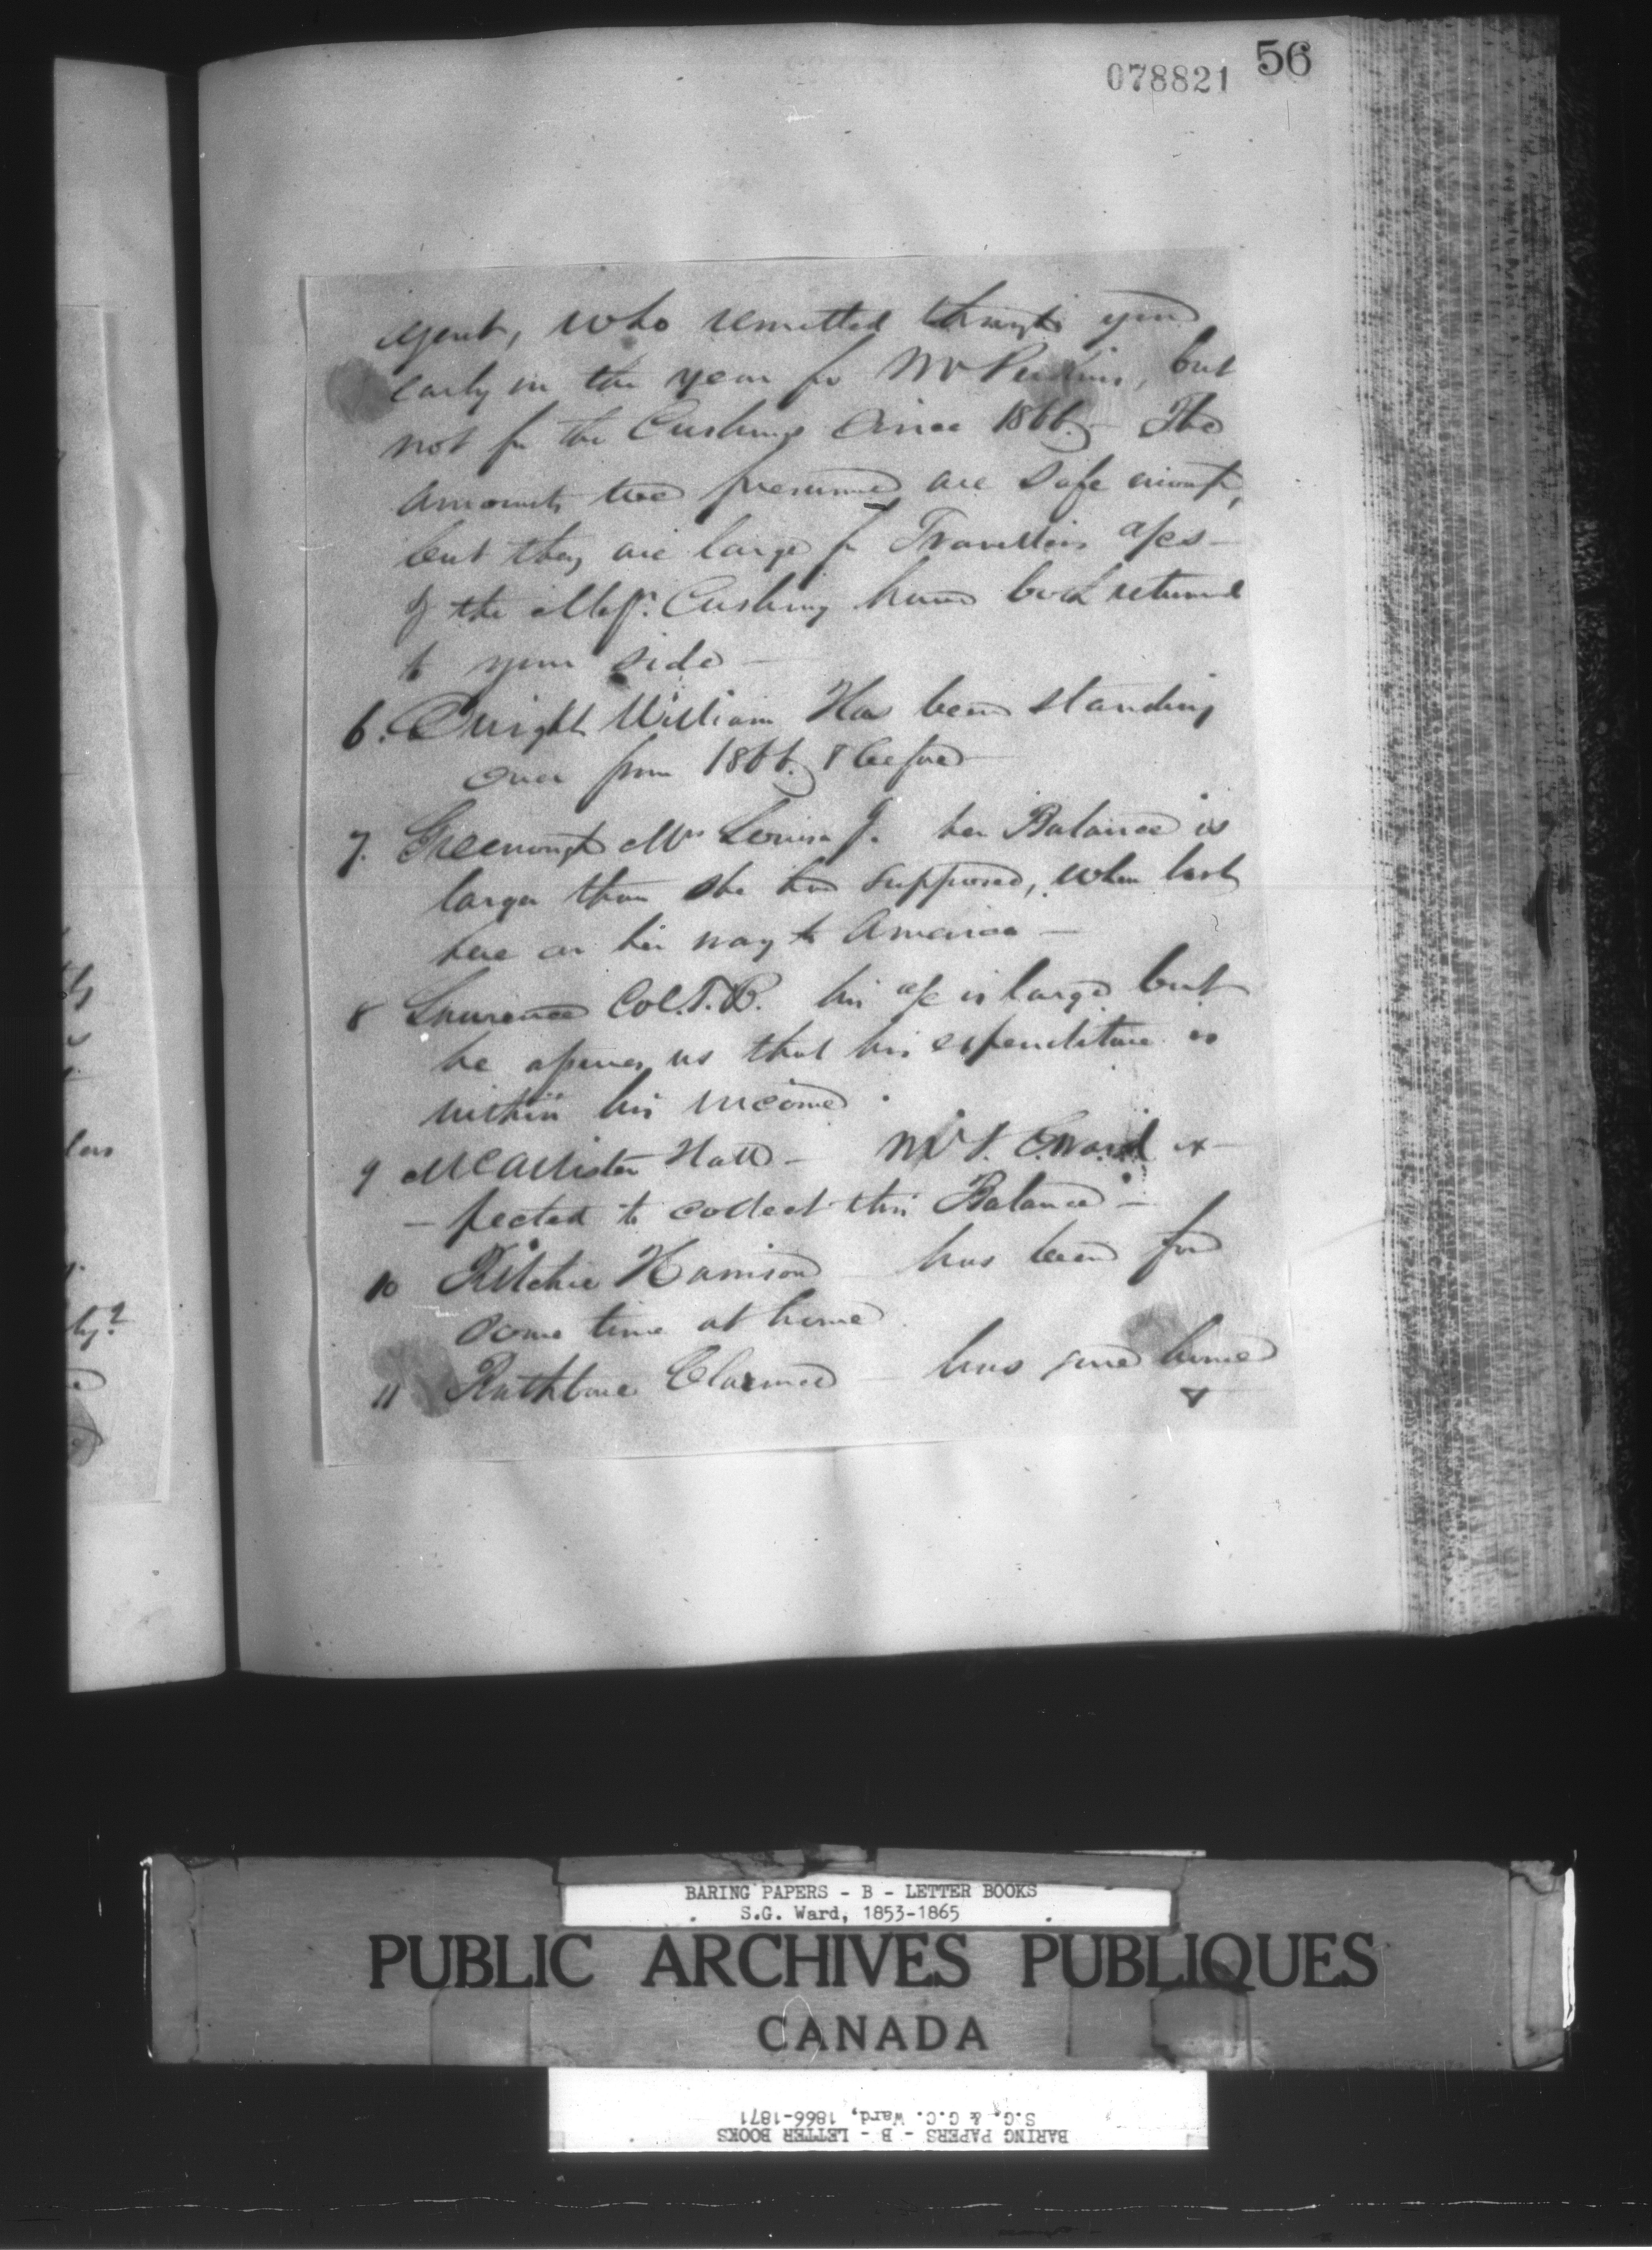 078821 56
agent, who remitted through you
early in the year for Mr Perkins, but
not for the Cushings since 1866. - The
amounts we presume are safe enough,
but they are large for Travellers a/cs -
of the Messrs. Cushing have both returned
to your side -
6. Dwight William Has been standing
over from 1866. & before -
7. Greenough Mrs Louisa J. her Balance is
larger than she had supposed, when last
here on her way to America -
8 Lawrence Col. T.B. his a/c is large but
he assures us that his expenditure is
within his income.
9 McAllister Hall - Mr S. G. Ward ex-
- pected to collect this Balance -
10 Ritchie Harrison has been for
some time at home
11 Rathbone Clarence - has gone home
&
BARING PAPERS - B - LETTER BOOKS
S.G. Ward, 1853-1865
PUBLIC ARCHIVES PUBLIQUES
CANADA
BARING PAPERS - B - LETTER BOOKS
S.G. & G.C. Ward, 1866-1871